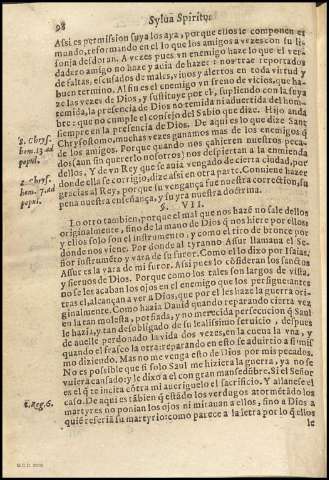 98
Sylua Spiritus
Assi es permission suya los aya, porque ellos le componen el
mundo, reformando en el lo que los amigos a vezes con su li-
sonja desdoran. A vezes pues vn enemigo haze lo que el verda
dadero amigo no haze y auia de hazer: nos trae reportados
de faltas, escusados de males, viuos y alertos en toda virtud y
buen termino. Al fin es el enemigo vn freno de vicios, que ha-
ze las vezes de Dios, y sustituye por el, supliendo con la suya
temida, la presencia de Dios no temida ni aduertida del hom-
bre: que no cumple el consejo del Sabio que dize. Hijo anda
siempre en la presencia de Dios. De aqui es lo que dize San
Chrysostomo, muchas vezes ganamos mas de los enemigos q̃
de los amigos. Porque quando nos çahieren nuestros peca-
dos (aun sin quererlo nosotros) nos despiertan a la emienda
dellos, Y de vn Rey que se auia vengado de cierta ciudad, por
donde ella se corrigio, dize assi en otra parte. Conuiene hazer
gracias al Rey, porque su vengança fue nuestra correction, su
pena nuestra enseñança, y suya nuestra doctrina.
S. Chrys.
hom. 13. ad
popul.
S. Chrys.
hom. 7. ad
popul.
§. VII.
Lo otro tambien, porque el mal que nos hazẽ no sale dellos
originalmente, sino de la mano de Dios q̃ nos hiere por ellos:
y ellos solo son el instrumento, y como el tiro de bronce por
donde nos viene. Por donde al tyranno Assur llamaua el Se-
ñor instrumẽto y vara de su furor. Como el lo dixo por Isaias:
Assur es la vara de mi furor. Assi pues lo cõsideran los sanctos
y sieruos de Dios. Porque como los tales son largos de vista,
no se les acaban los ojos en el enemigo que los persigue: antes
tras el, alcançan a ver a Dios, que por el les haze la guerra ori-
ginalmente. Como hazia Dauid quando reparando cierta vez
en la tan molesta, porfiada, y no merecida persecucion q̃ Saul
le hazia, y tan desobligado de su lealissimo seruicio, despues
de auelle perdonado la vida dos vezes, en la cueua la vna, y
quando el frasco la otra: reparando en esto se aduirtio a si mis-
mo diziendo. Mas no me venga esto de Dios por mis pecados.
No es possible que si solo Saul me hiziera la guerra, ya no se es-
tuuiera cansado y le dixo a el con gran mansedũbre. Si el Señor
es el q̃ te incita cõtra mi auerigueslo el sacrificio. Y allanese el
caso. De aqui es tãbien q̃ estãdo los verdugos atormẽtãdo los
martyres no ponian los ojos ni mirauan a ellos, sino a Dios a
quiẽ referia su martyrio: como parece a la letra por lo q̃ ellos
le
1. Reg. 6.